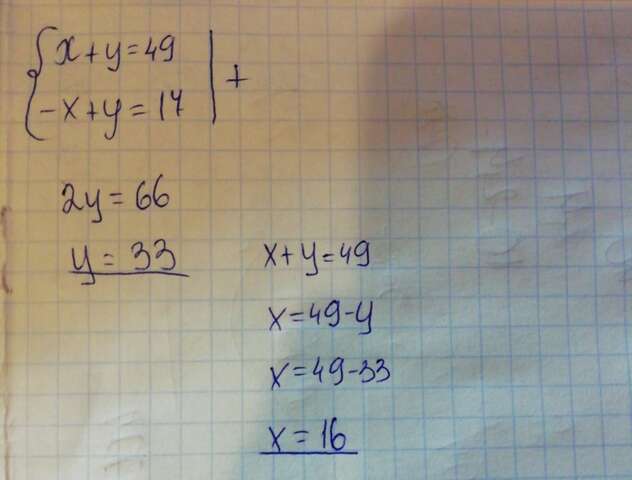 x+y=49
-x+y=17
+
2y=66
y=33
x+y=49
x=49-y
x=49-33
x=16